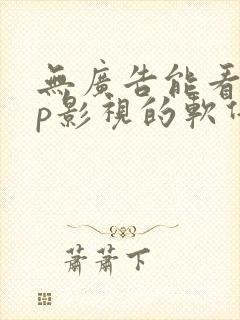 無廣告能看
p影視的軟
蕭蕭下